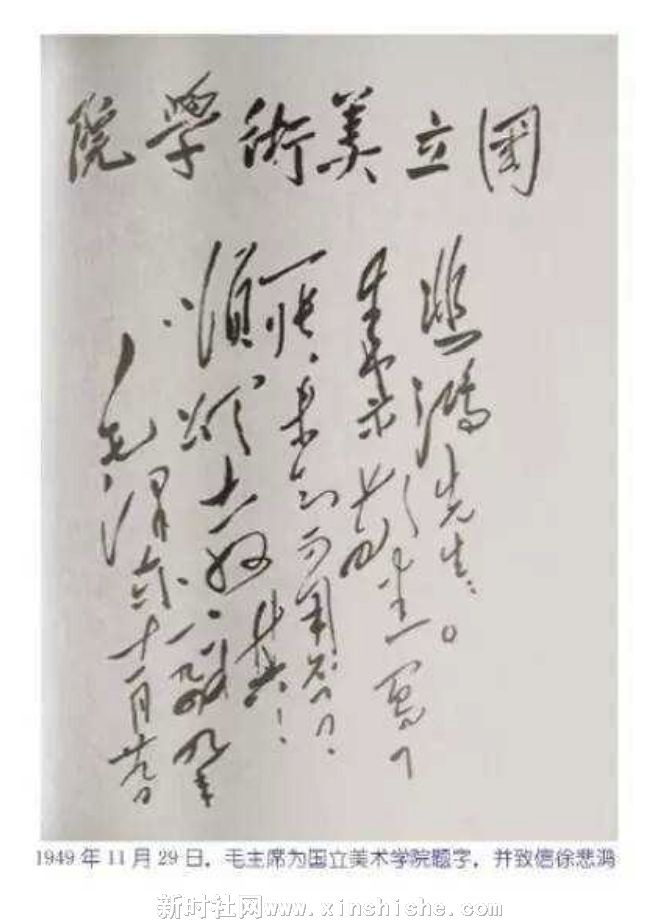 國立美術學院
悲鴻先生：
來示敬悉。寫了
一張，未知可用否？
順頌
教祺！
毛澤東
十一月廿九日
1949 年 11 月 29 日，毛主席为国立美术学院题字，并致信徐悲鸿
新时社网www.xinshishe.com